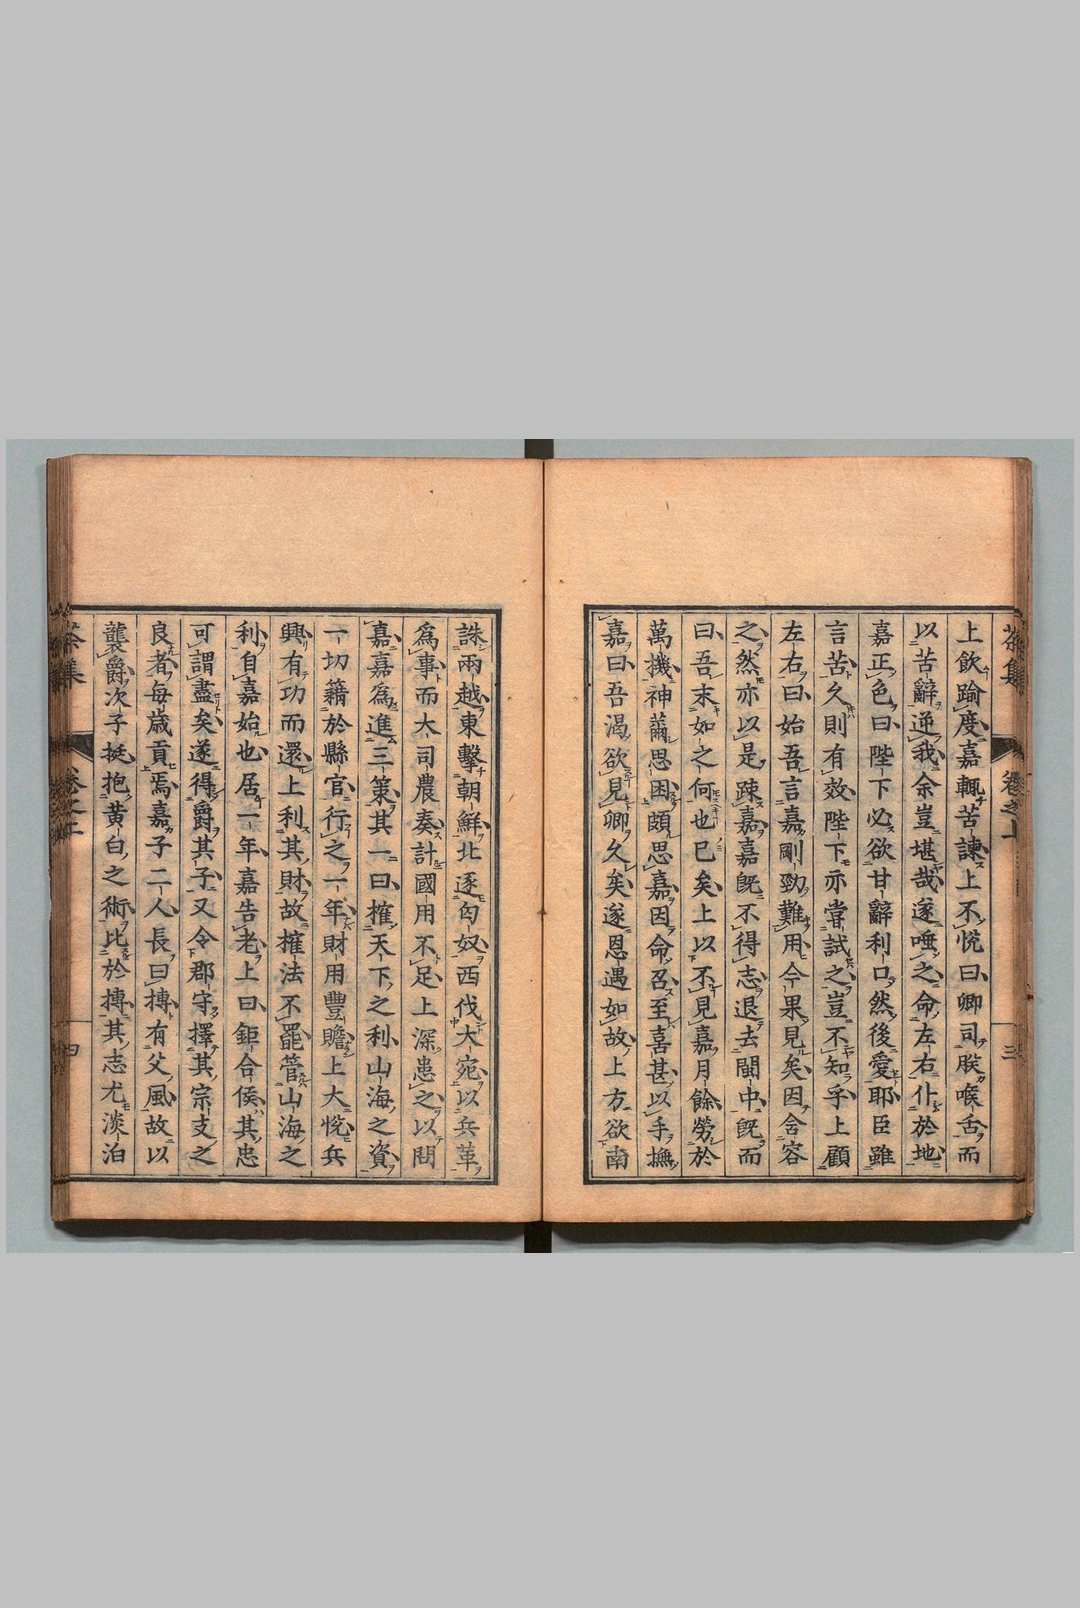 茶集
卷之上
三
上飲踰度嘉輒苦諫上不悅曰卿司朕喉舌而
以苦辭逆我余豈堪哉遂唾之命左右仆於地
嘉正色曰陛下必欲甘辭利口然後愛耶臣雖
言苦久則有效陛下亦嘗試之豈不知乎上顧
左右曰始吾言嘉剛勁難用今果見矣因含容
之然亦以是疎嘉嘉既不得志退去閩中既而
曰吾末如之何也已矣上以不見嘉月餘勞於
萬機神薾思困頗思嘉因命召至喜甚以手撫
嘉曰吾渴欲見卿久矣遂恩遇如故上方欲南
誅兩越東擊朝鮮北逐匈奴西伐大宛以兵革
爲事而大司農奏計國用不足上深患之以問
嘉嘉爲進三策其一曰搉天下之利山海之資
一切籍於縣官行之一年財用豐贍上大悅兵
興有功而還上利其財故搉法不罷管山海之
利自嘉始也居一年嘉告老上曰鉅合侯其忠
可謂盡矣遂得爵其子又令郡守擇其宗支之
良者每歲貢焉嘉子二人長曰摶有父風故以
襲爵次子挺抱黄白之術比於摶其志尤淡泊
茶集
四